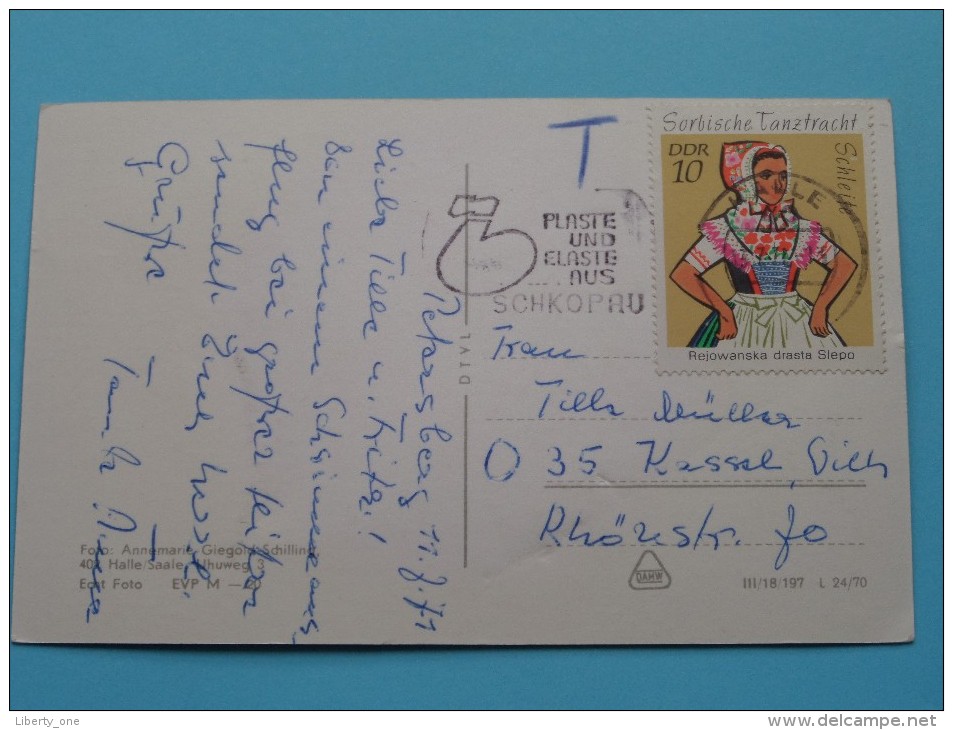 T
Sorbische Tanztracht
Schleife
DDR
10
HALLE
Rejowanska drasta Slepo
PLASTE
UND
ELASTE
AUS
SCHKOPAU
Petersberg 11.7.71
Liebe Tilla u. Fritz!
Von einem
flug bei großer Hitze
sendet Euch
Grüße Tante
DIV1
Frau
Tilla Müller
35 Kassel, Wilh
Rhönstr. 70
Foto: Annemarie Giegold-Schilling,
402 Halle/Saale, Uhuweg 3
Echt Foto EVP M —20
DAHW
III/18/197 L 24/70
Liberty_one
http://www.delcampe.net